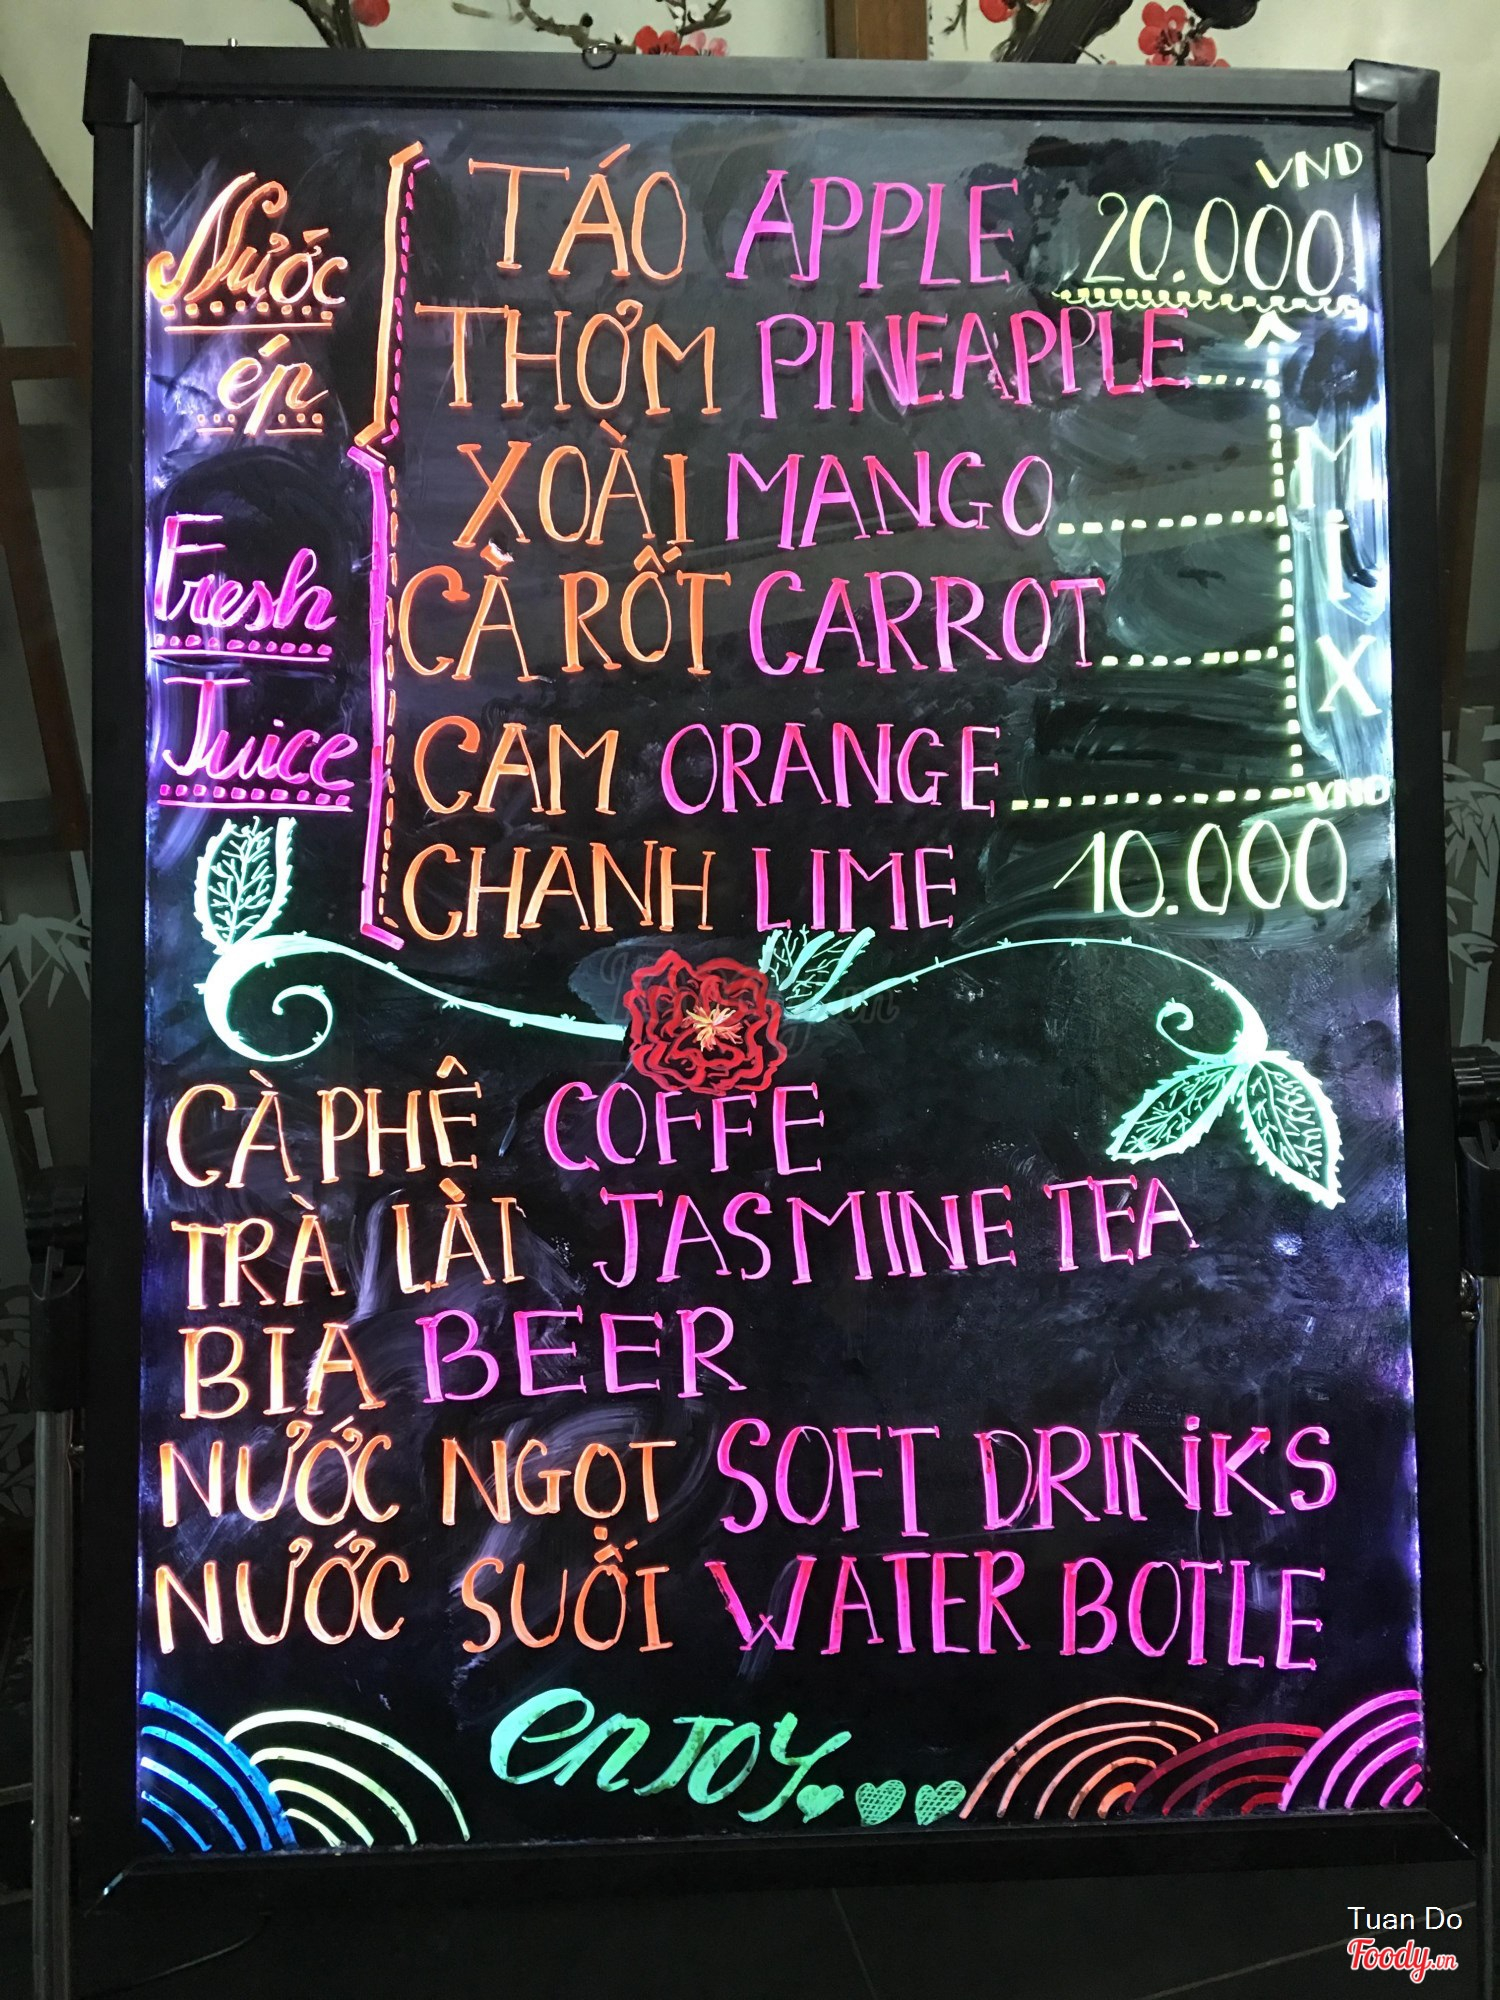 VND
Nước
ép
Fresh
Juice
TÁO APPLE 20.000
THƠM PINEAPPLE
XOÀI MANGO
CÀ RỐT CARROT
CAM ORANGE
MIX
VND
CHANH LIME 10.000
CÀ PHÊ COFFE
TRÀ LÀI JASMINE TEA
BIA BEER
NƯỚC NGỌT SOFT DRINKS
NƯỚC SUỐI WATER BOTLE
enjoy...
Tuan Do
Foody.vn